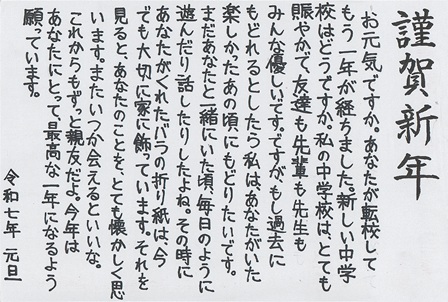 謹賀新年
お元気ですか。あなたが転校して
もう一年が経ちました。新しい中学
校はどうですか。私の中学校は、とても
賑やかで、友達も先輩も先生も
みんな優しいです。ですがもし過去に
もどれるとしたら私は、あなたがいた
楽しかったあの頃にもどりたいです。
まだあなたと一緒にいた頃、毎日のように
遊んだり話したりしたよね。その時に
あなたがくれたバラの折り紙は、今
でも大切に家に飾っています。それを
見ると、あなたのことを、とても懐かしく思
います。またいつか会えるといいな。
これからもずっと親友だよ。今年は
あなたにとって、最高な一年になるよう
願っています。
令和七年 元旦